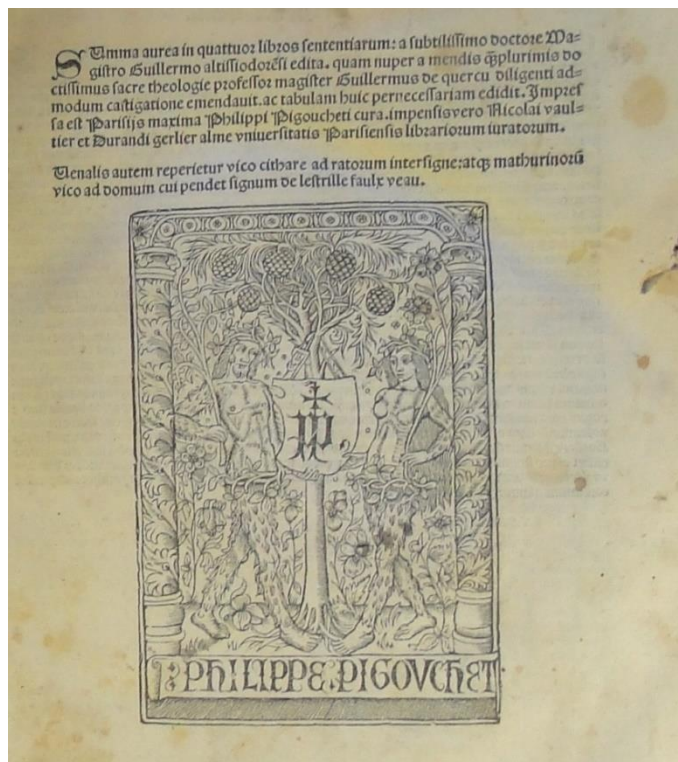 SUmma aurea in quattuor libros sententiarum: a subtilissimo doctore Ma=
gistro Guillermo altissiodorēsi edita. quam nuper a mendis qꝫplurimis do
ctissimus sacre theologie professor magister Guillermus de quercu diligenti ad=
modum castigatione emendauit. ac tabulam huic pernecessariam edidit. Impres
sa est Parisijs maxima Philippi Pigoucheti cura. impensis vero Nicolai vaul=
tier et Durandi gerlier alme vniuersitatis Parisiensis librariorum iuratorum.
Uenalis autem reperietur vico cithare ad ratorum intersigne: atqꝫ mathurinorū
vico ad domum cui pendet signum de lestrille faulx veau.
PP
PHILIPPE.PIGOVCHET